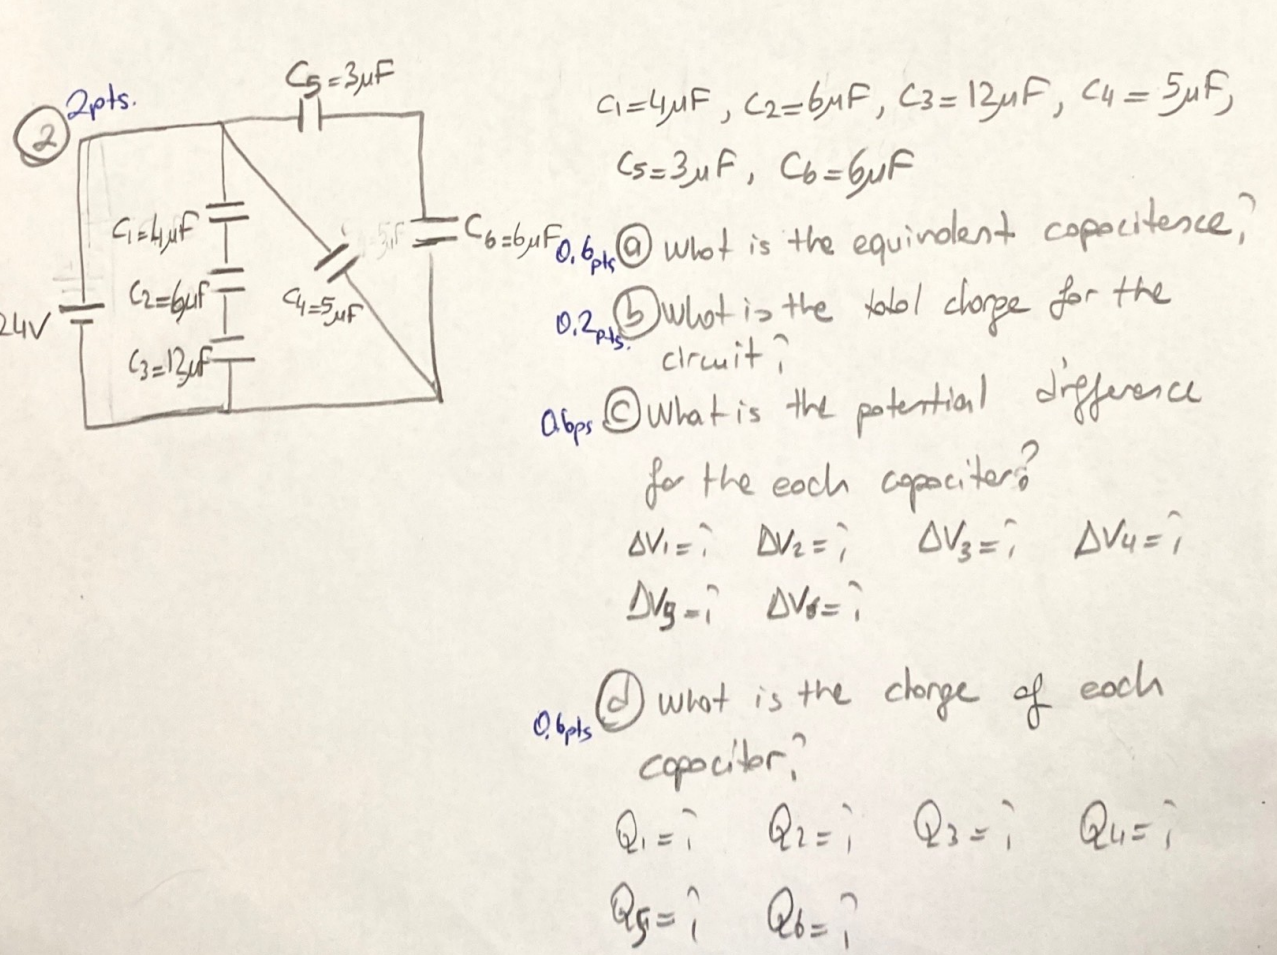 2 2pts.
C5=3μF
C1=4μF
C2=6μF
C3=12μF
C4=5μF
C6=6μF
24V
C1=4μF, C2=6μF, C3=12μF, C4=5μF,
C5=3μF, C6=6μF
0.6pts a what is the equivalent capacitence?
0.2pts. b what is the total charge for the
circuit?
0.6ps c what is the potential difference
for the each capacitor?
ΔV1=? ΔV2=? ΔV3=? ΔV4=?
ΔV5=? ΔV6=?
0.6pts d what is the charge of each
capacitor?
Q1=? Q2=? Q3=? Q4=?
Q5=? Q6=?